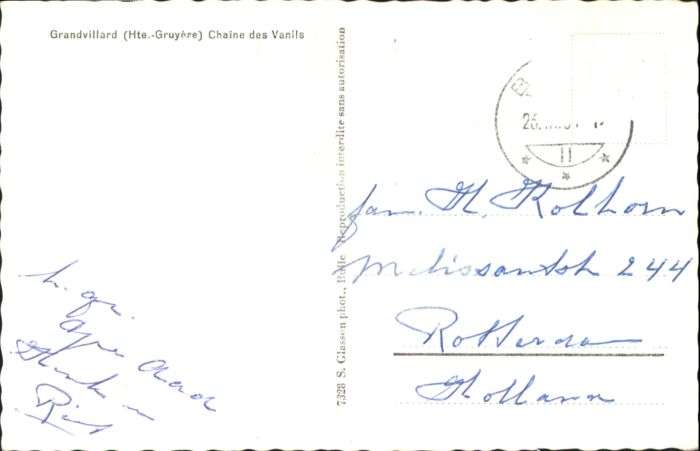 Grandvillard (Hte.-Gruyère) Chaîne des Vanils
7328 S. Glasson phot., Bulle Reproduction interdite sans autorisation
26.
11
fam. H. Kolhorn
244
Rotterdam
Holland
h. gr.
Henk